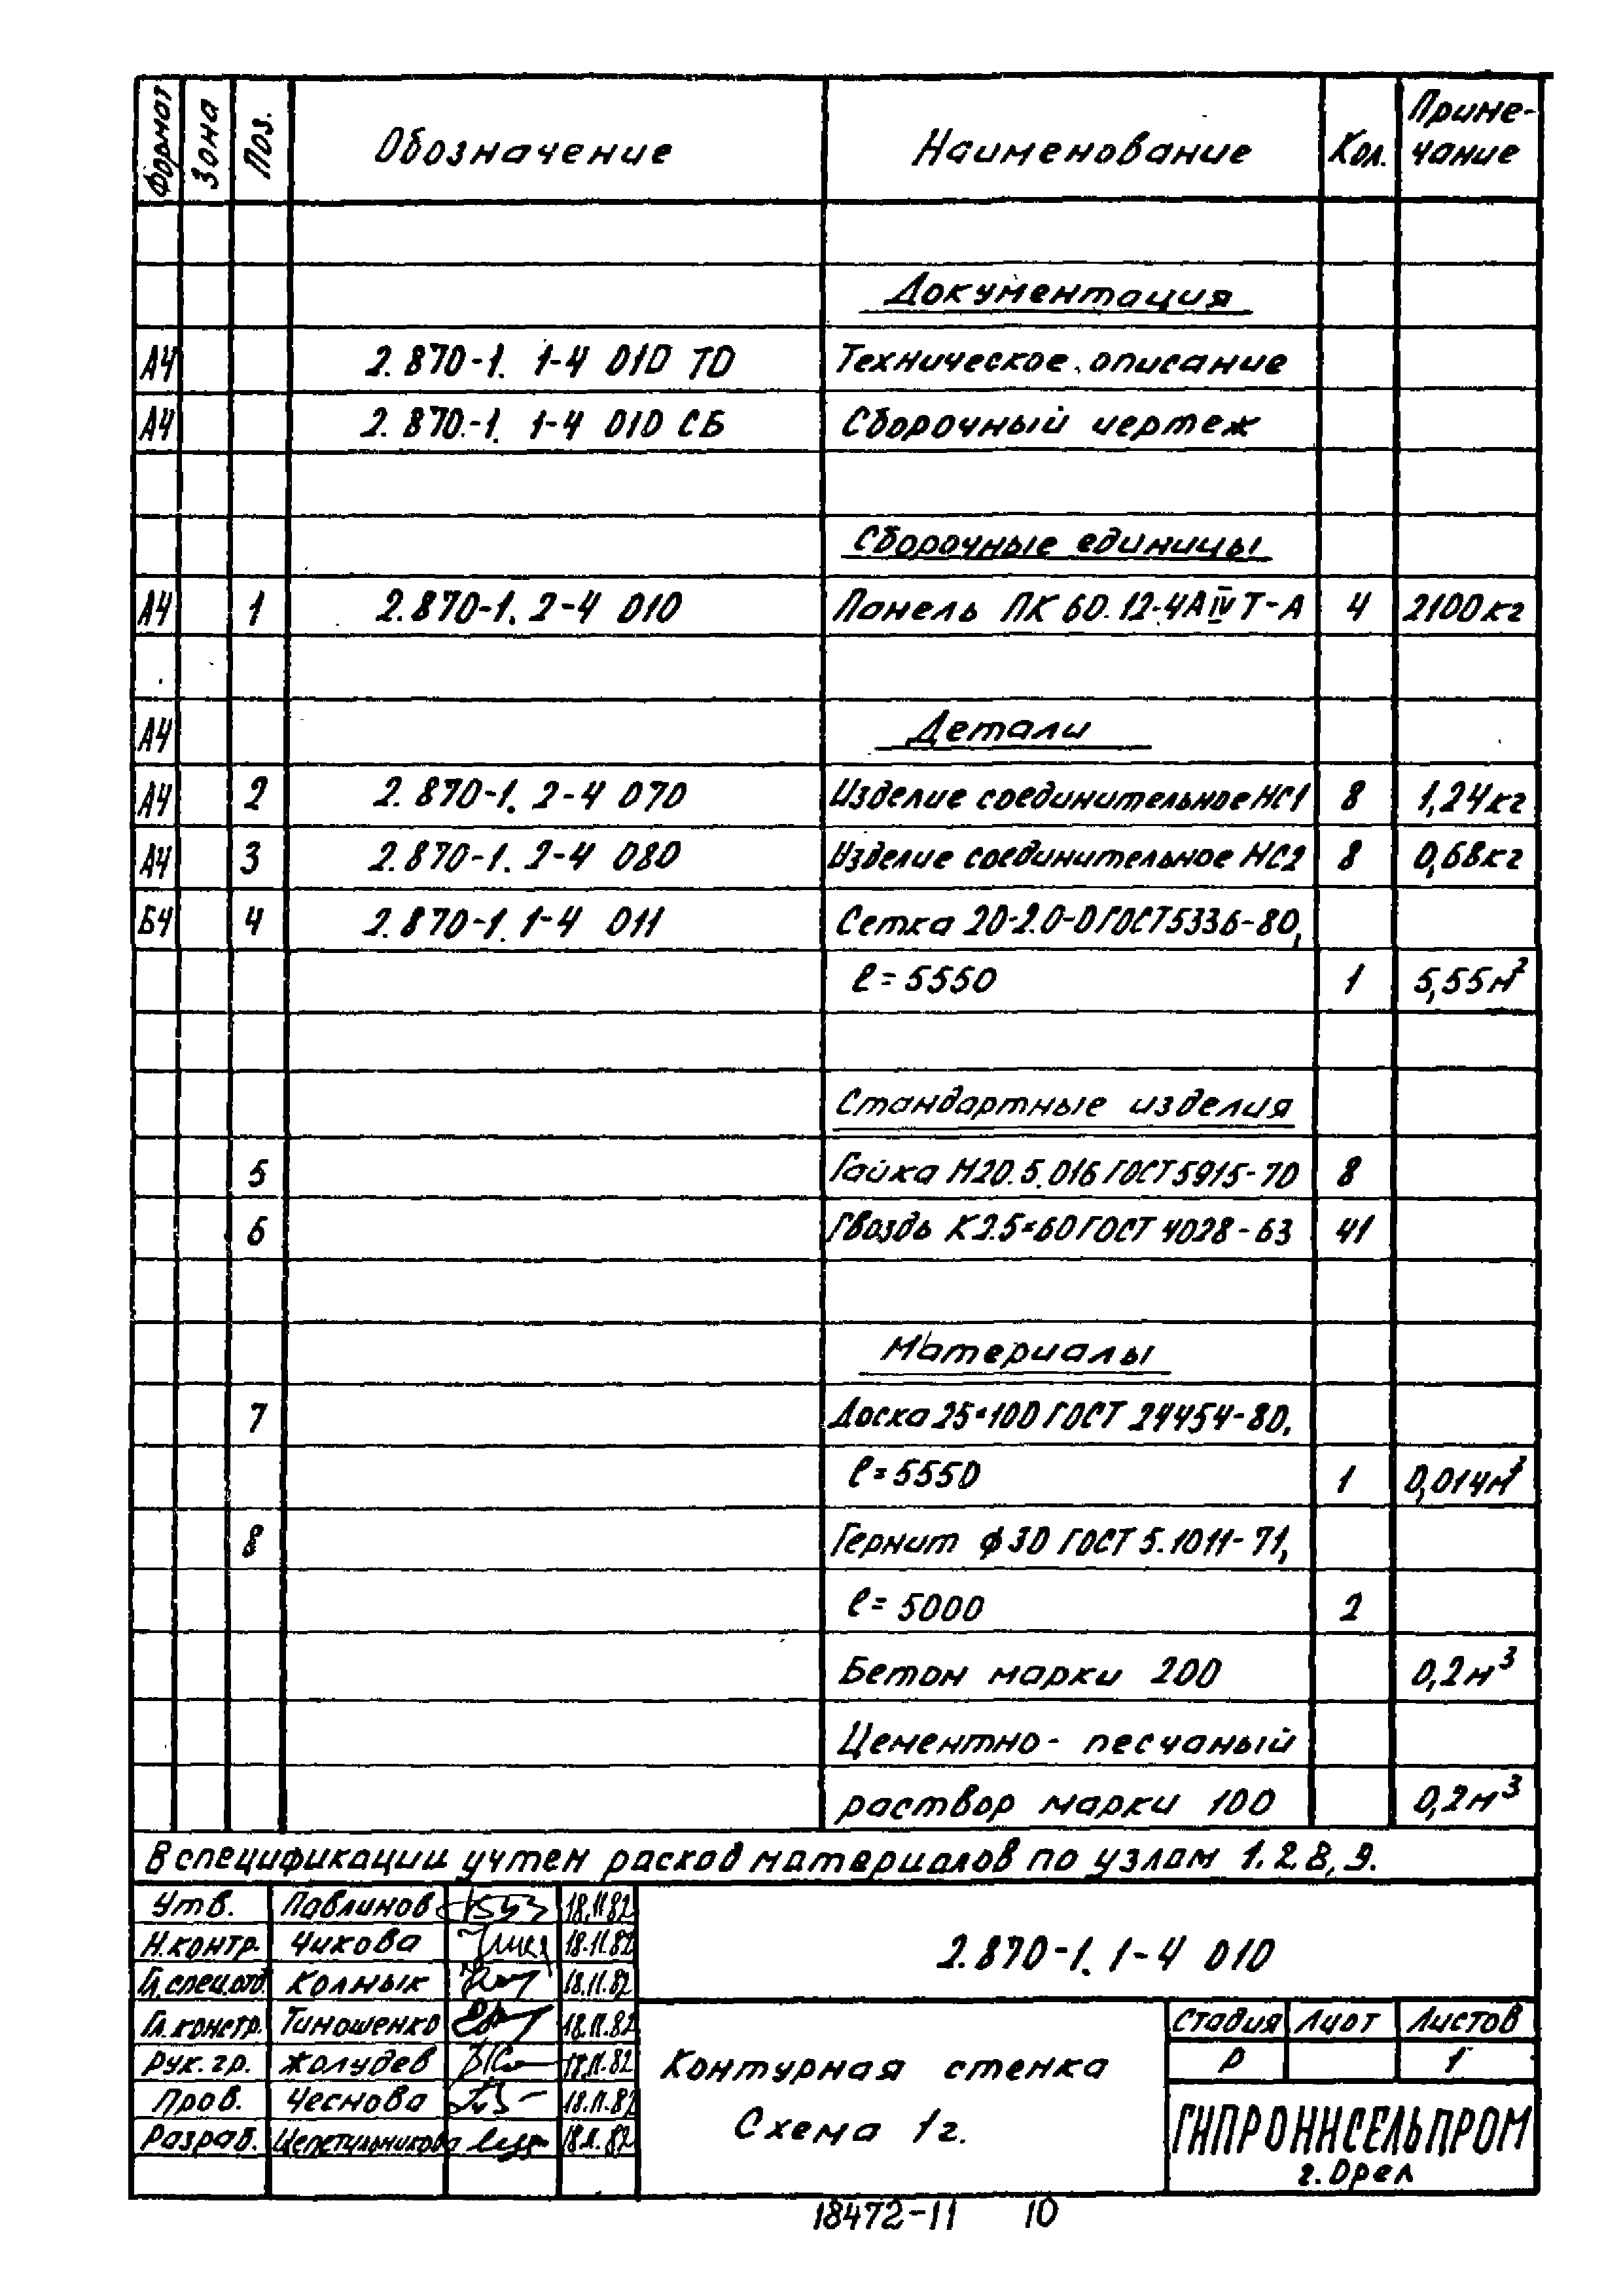 Формат Зона Поз. Обозначение Наименование Кол. Приме-
чание
Документация
А4 2.870-1. 1-4 010 ТО Техническое описание
А4 2.870-1. 1-4 010 СБ Сборочный чертеж
Сборочные единицы
А4 1 2.870-1. 2-4 010 Панель ПК 60.12-4АIVТ-А 4 2100кг
А4 Детали
А4 2 2.870-1. 2-4 070 Изделие соединительное НС1 8 1,24кг
А4 3 2.870-1. 2-4 080 Изделие соединительное НС2 8 0,68кг
БЧ 4 2.870-1. 1-4 011 Сетка 20-2.0-0 ГОСТ 5336-80,
ℓ=5550 1 5,55м²
Стандартные изделия
5 Гайка М20.5.016 ГОСТ 5915-70 8
6 Гвоздь К2.5×60 ГОСТ 4028-63 41
Материалы
7 Доска 25×100 ГОСТ 24454-80,
ℓ=5550 1 0,014м³
8 Гернит ϕ30 ГОСТ 5.1011-71,
ℓ=5000 2
Бетон марки 200 0,2м³
Цементно-песчаный
раствор марки 100 0,2м³
В спецификации учтен расход материалов по узлам 1.2.8,9.
Утв. Павлинов 18.11.82
Н.контр. Чикова 18.11.82
Гл.спец.отд. Колнык 18.11.82
Гл.констр. Тимошенко 18.11.82
Рук.гр. Жолудев 18.11.82
Пров. Чеснова 18.11.82
Разраб. 18.11.82
2.870-1. 1-4 010
Контурная стенка
Схема 1г.
Стадия Лист Листов
Р 1
ГИПРОНИСЕЛЬПРОМ
г.Орел
18472-11 10